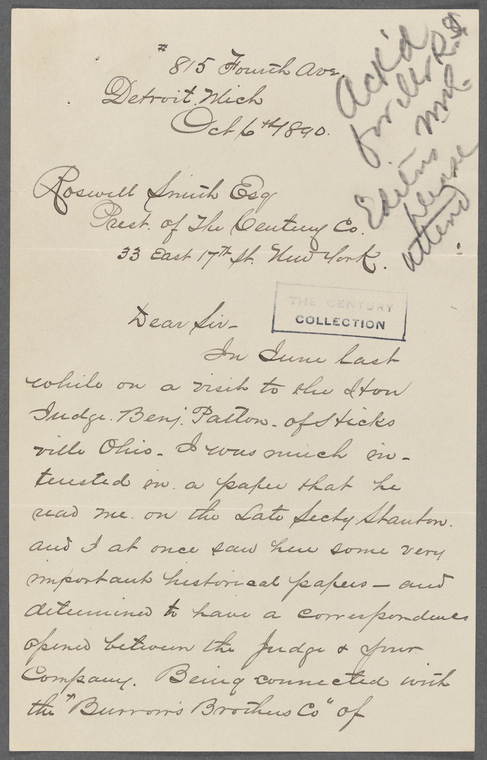 # 815 Fourth Ave.
Detroit, Mich
Oct 6th 1890.
Ack'd
for Mr R.S.
Editors
please
attend
Roswell Smith Esq
Prest. of The Century Co.
33 East 17th St. New York.
THE CENTURY
COLLECTION
Dear Sir-
In June last
while on a visit to the Hon
Judge. Benj. Patton. of Hicks
ville Ohio. I was much in-
terested in. a paper that he
read me. on the Late Secty Stanton.
and I at once saw here some very
important historical papers — and
determined to have a correspondence
opened between the Judge & your
Company. Being connected with
the "Burrows Brothers Co" of